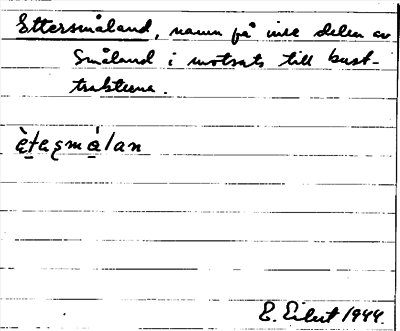 Ettersmåland, namn på inre delen av
Småland i motsats till kust-
trakterna.
ètașmålan
E. Eilert 1944.